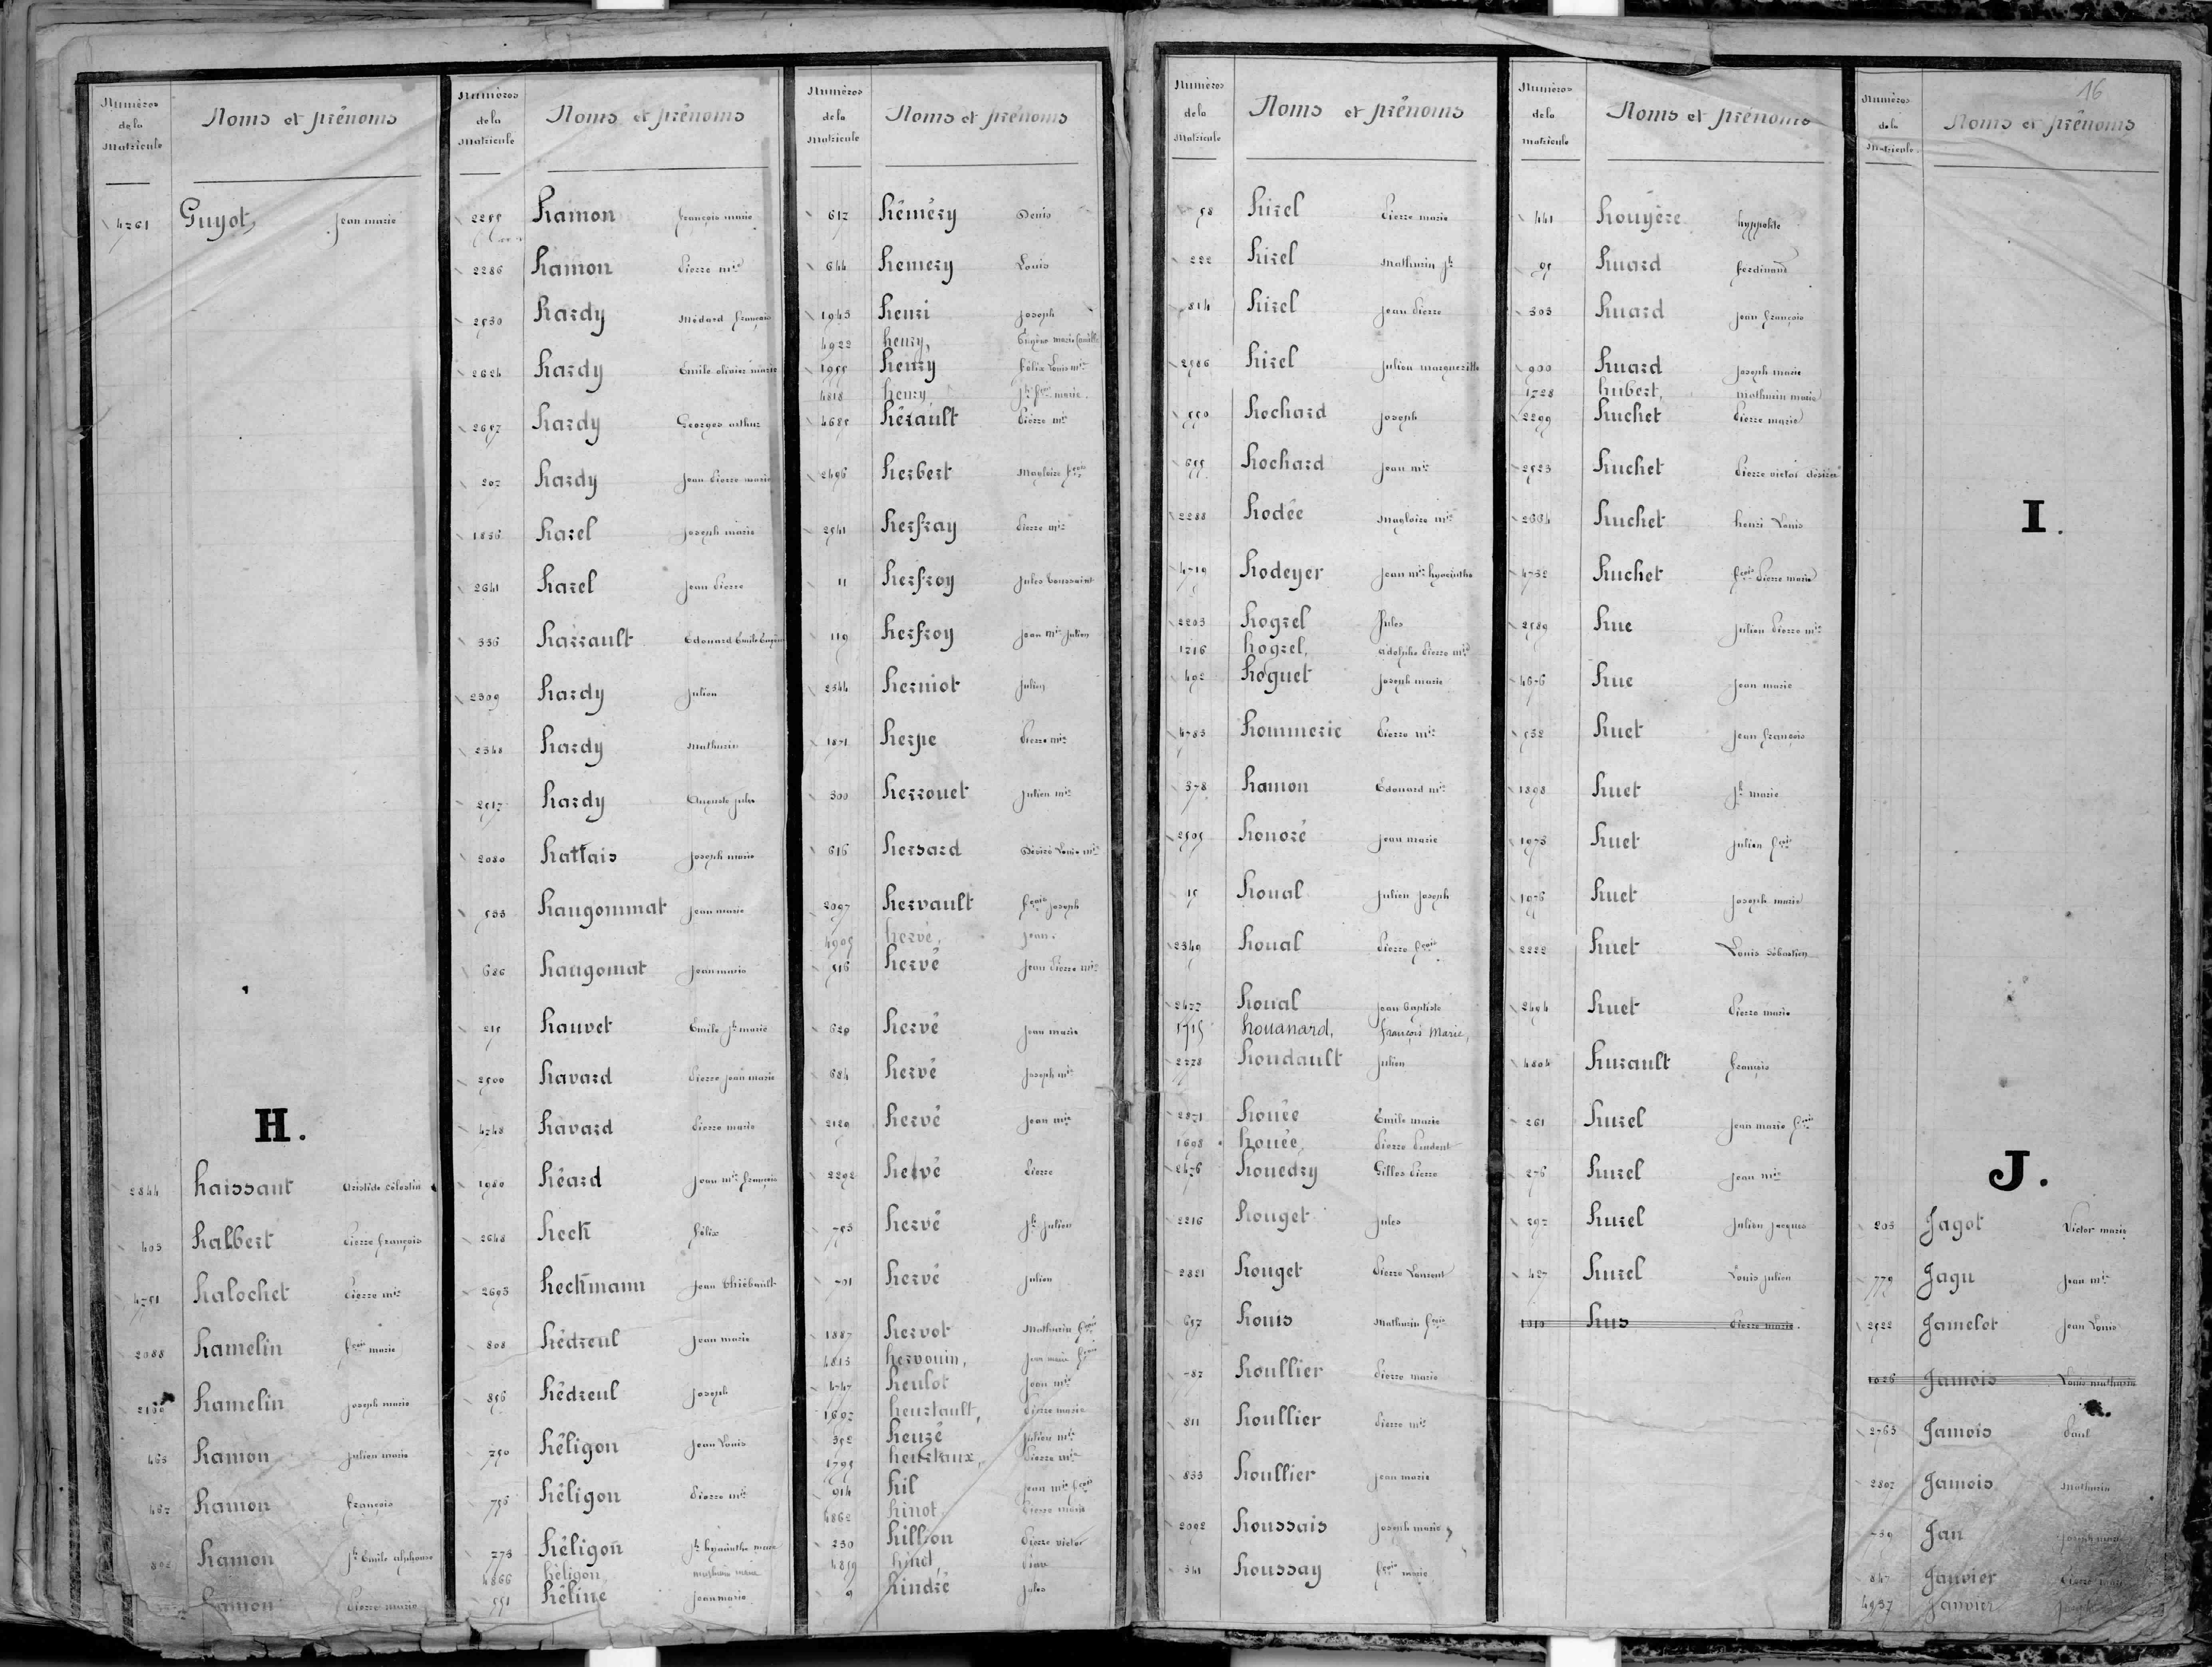 16
Numéros de la Matricule Noms et prénoms
4761 Guyot, Jean marie
H.
2844 haissant Aristide célestin
405 halbert Pierre françois
4751 halochet Pierre mie
2088 hamelin fçois marie
hamelin Joseph marie
463 hamon Julien marie
467 hamon françois
802 hamon Jh Emile alphonse
hamon Pierre marie
Numéros de la Matricule Noms et prénoms
2285 hamon françois marie
2286 hamon Pierre mie
2530 hardy Médard françois
2624 hardy Emile olivier marie
2657 hardy Georges arthur
207 hardy Jean Pierre marie
1836 harel Joseph marie
2641 harel Jean Pierre
336 harrault Edouard Emile Eugène
2309 hardy Julien
2348 hardy Mathurin
2517 hardy Auguste Jules
2080 hattais Joseph marie
533 haugommat Jean marie
686 haugomat Jean marie
215 hauvet Emile Jh marie
2500 havard Pierre Jean marie
4748 havard Pierre marie
1980 héard Jean mie françois
2648 heck félix
2693 heckmann Jean thiébault
808 hédreul Jean marie
856 hédreul Joseph
750 héligon Jean Louis
756 héligon Pierre mie
773 héligon Jh hyacinthe marie
4866 héligon mathurin marie
551 héline Jean marie
Numéros de la Matricule Noms et prénoms
617 hémèry Denis
644 hemery Louis
1943 henri Joseph
4922 henry, Eugène marie Camille
1955 henry félix Louis mie
4818 henry, Jh fçois marie.
4685 hérault Pierre mie
2496 herbert Magloire fçois
2541 herfray Pierre mie
11 herfroy Jules toussaint
119 herfroy Jean mie Julien
2344 herniot Julien
1871 herpe Pierre mie
300 herrouet Julien mie
616 hersard Désiré Louis mie
2097 hervault fçois Joseph
4905 hervé, Jean.
516 hervé Jean Pierre mie
629 hervé Jean marie
684 hervé Joseph mie
2129 hervé Jean mie
2292 hervé Pierre
753 hervé Jh Julien
701 hervé Julien
1887 hervot Mathurin fçois
4813 hervouin, Jean marie fçois
4747 heulot Jean mie
1697 heurtault, Pierre marie
352 heuzé Julien mie
1795 heurtaux, Pierre mie
914 hil Jean mie fçois
4862 hinot Pierre marie
230 hillion Pierre victor
4859 hinel,
9 hindré Jules
Numéros de la Matricule Noms et prénoms
58 hirel Pierre marie
222 hirel Mathurin Jh
814 hirel Jean Pierre
2586 hirel Julien margueritte
550 hochard Joseph
655 hochard Jean mie
2288 hodée Magloire mie
4719 hodeyer Jean mie hyacinthe
2203 hogrel Jules
1216 hogrel, adolphe Pierre mie
492 hoguet Joseph marie
4783 hommerie Pierre mie
378 hamon Edouard mie
2505 honoré Jean marie
15 houal Julien Joseph
2349 houal Pierre fçois
2477 houal Jean baptiste
1715 houanard, françois Marie,
2778 houdault Julien
2871 houée Emile marie
1698 houée, Pierre Prudent
2476 houedry Gilles Pierre
2216 houget Jules
2821 houget Pierre Laurent
657 houis Mathurin fçois
787 houllier Pierre marie
811 houllier Pierre mie
833 houllier Jean marie
2092 houssais Joseph marie
341 houssay fçois marie
Numéros de la matricule Noms et prénoms
441 houyère hyppolite
95 huard ferdinand
303 huard Jean françois
900 huard Joseph marie
1728 hubert, mathurin marie
2299 huchet Pierre marie
2523 huchet Pierre victor désiré
2664 huchet henri Louis
4732 huchet fçois Pierre marie
2589 hue Julien Pierre mie
4676 hue Jean marie
532 huet Jean françois
1898 huet Jh marie
1973 huet Julien fçois
1976 huet Joseph marie
2222 huet Louis sébastien
2494 huet Pierre marie
4804 hurault françois
261 hurel Jean marie fçois
276 hurel Jean mie
297 hurel Julien Jacques
427 hurel Louis Julien
1010 hus Pierre marie.
Numéros de la Matricule Noms et prénoms
I.
J.
203 Jagot Victor marie
779 Jagu Jean mie
2522 Jamelot Jean Louis
1026 Jamois Louis mathurin
2763 Jamois Paul
2807 Jamois Mathurin
739 Jan Joseph marie
847 Janvier Pierre marie
4937 Janvier